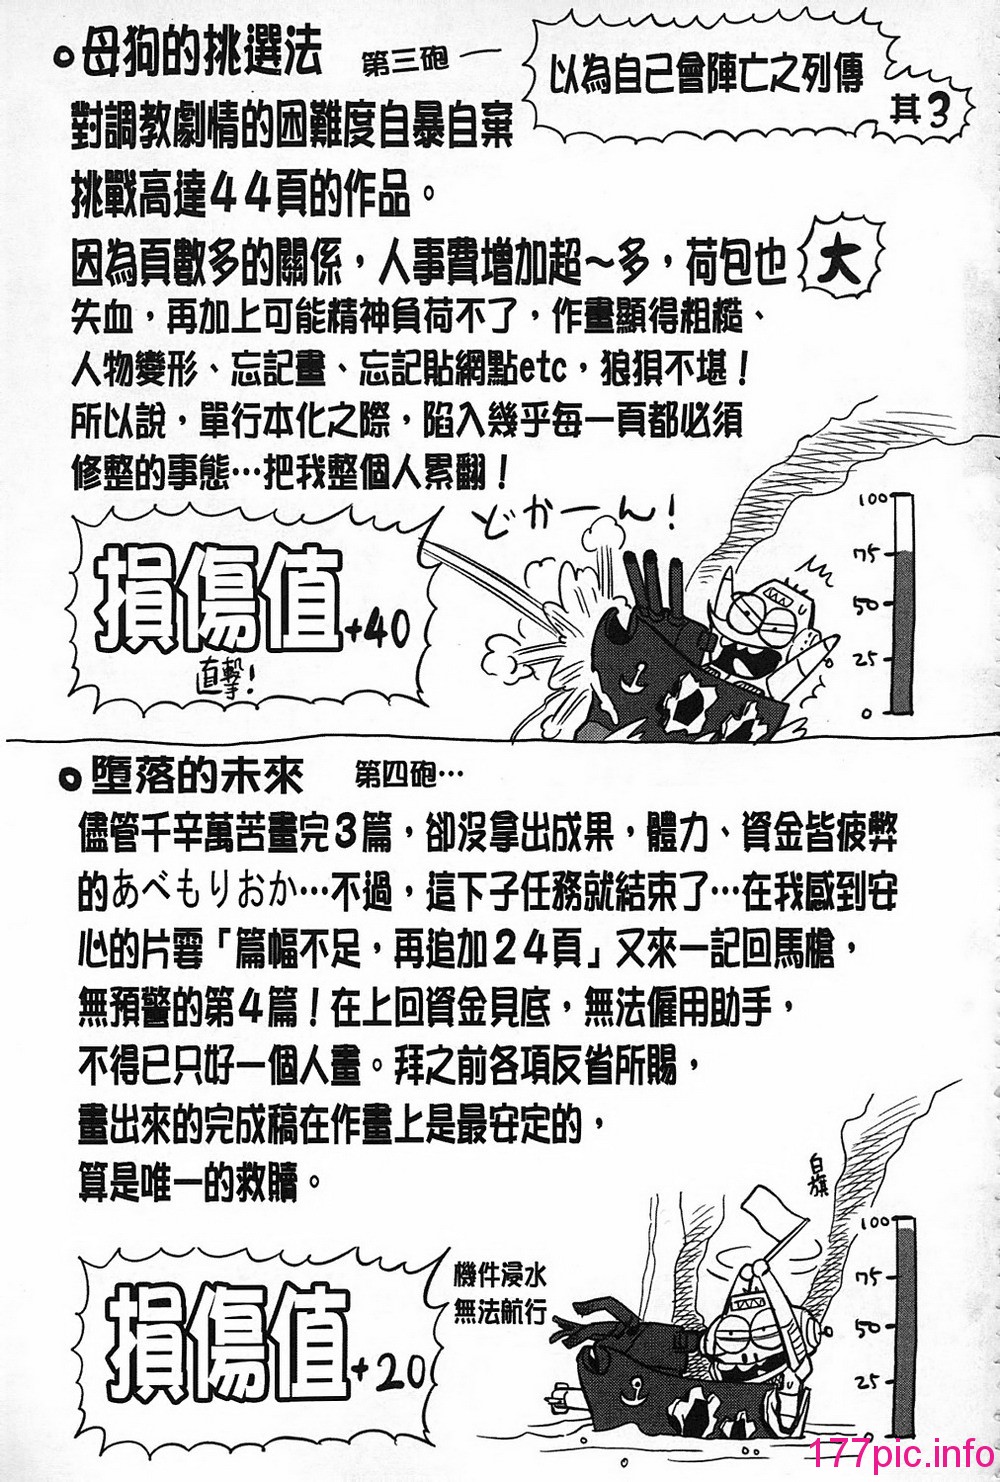 以為自己會陣亡之列傳
其3
母狗的挑選法 第三砲一
對調教劇情的困難度自暴自棄
挑戰高達44頁的作品。
因為頁數多的關係，人事費增加超～多，荷包也大
失血，再加上可能精神負荷不了，作畫顯得粗糙、
人物變形、忘記畫、忘記貼網點etc，狼狽不堪！
所以說，單行本化之際，陷入幾乎每一頁都必須
修整的事態…把我整個人累翻！
どかーん！
損傷值+40
直擊！
100
75
50
25
0
墮落的未來 第四砲…
儘管千辛萬苦畫完3篇，卻沒拿出成果，體力、資金皆疲弊
的あべもりおか…不過，這下子任務就結束了…在我感到安
心的片雲「篇幅不足，再追加24頁」又來一記回馬槍，
無預警的第4篇！在上回資金見底，無法僱用助手，
不得已只好一個人畫。拜之前各項反省所賜，
畫出來的完成稿在作畫上是最安定的，
算是唯一的救贖。
白旗
損傷值+20
機件浸水
無法航行
100
75
50
25
0
177pic.info